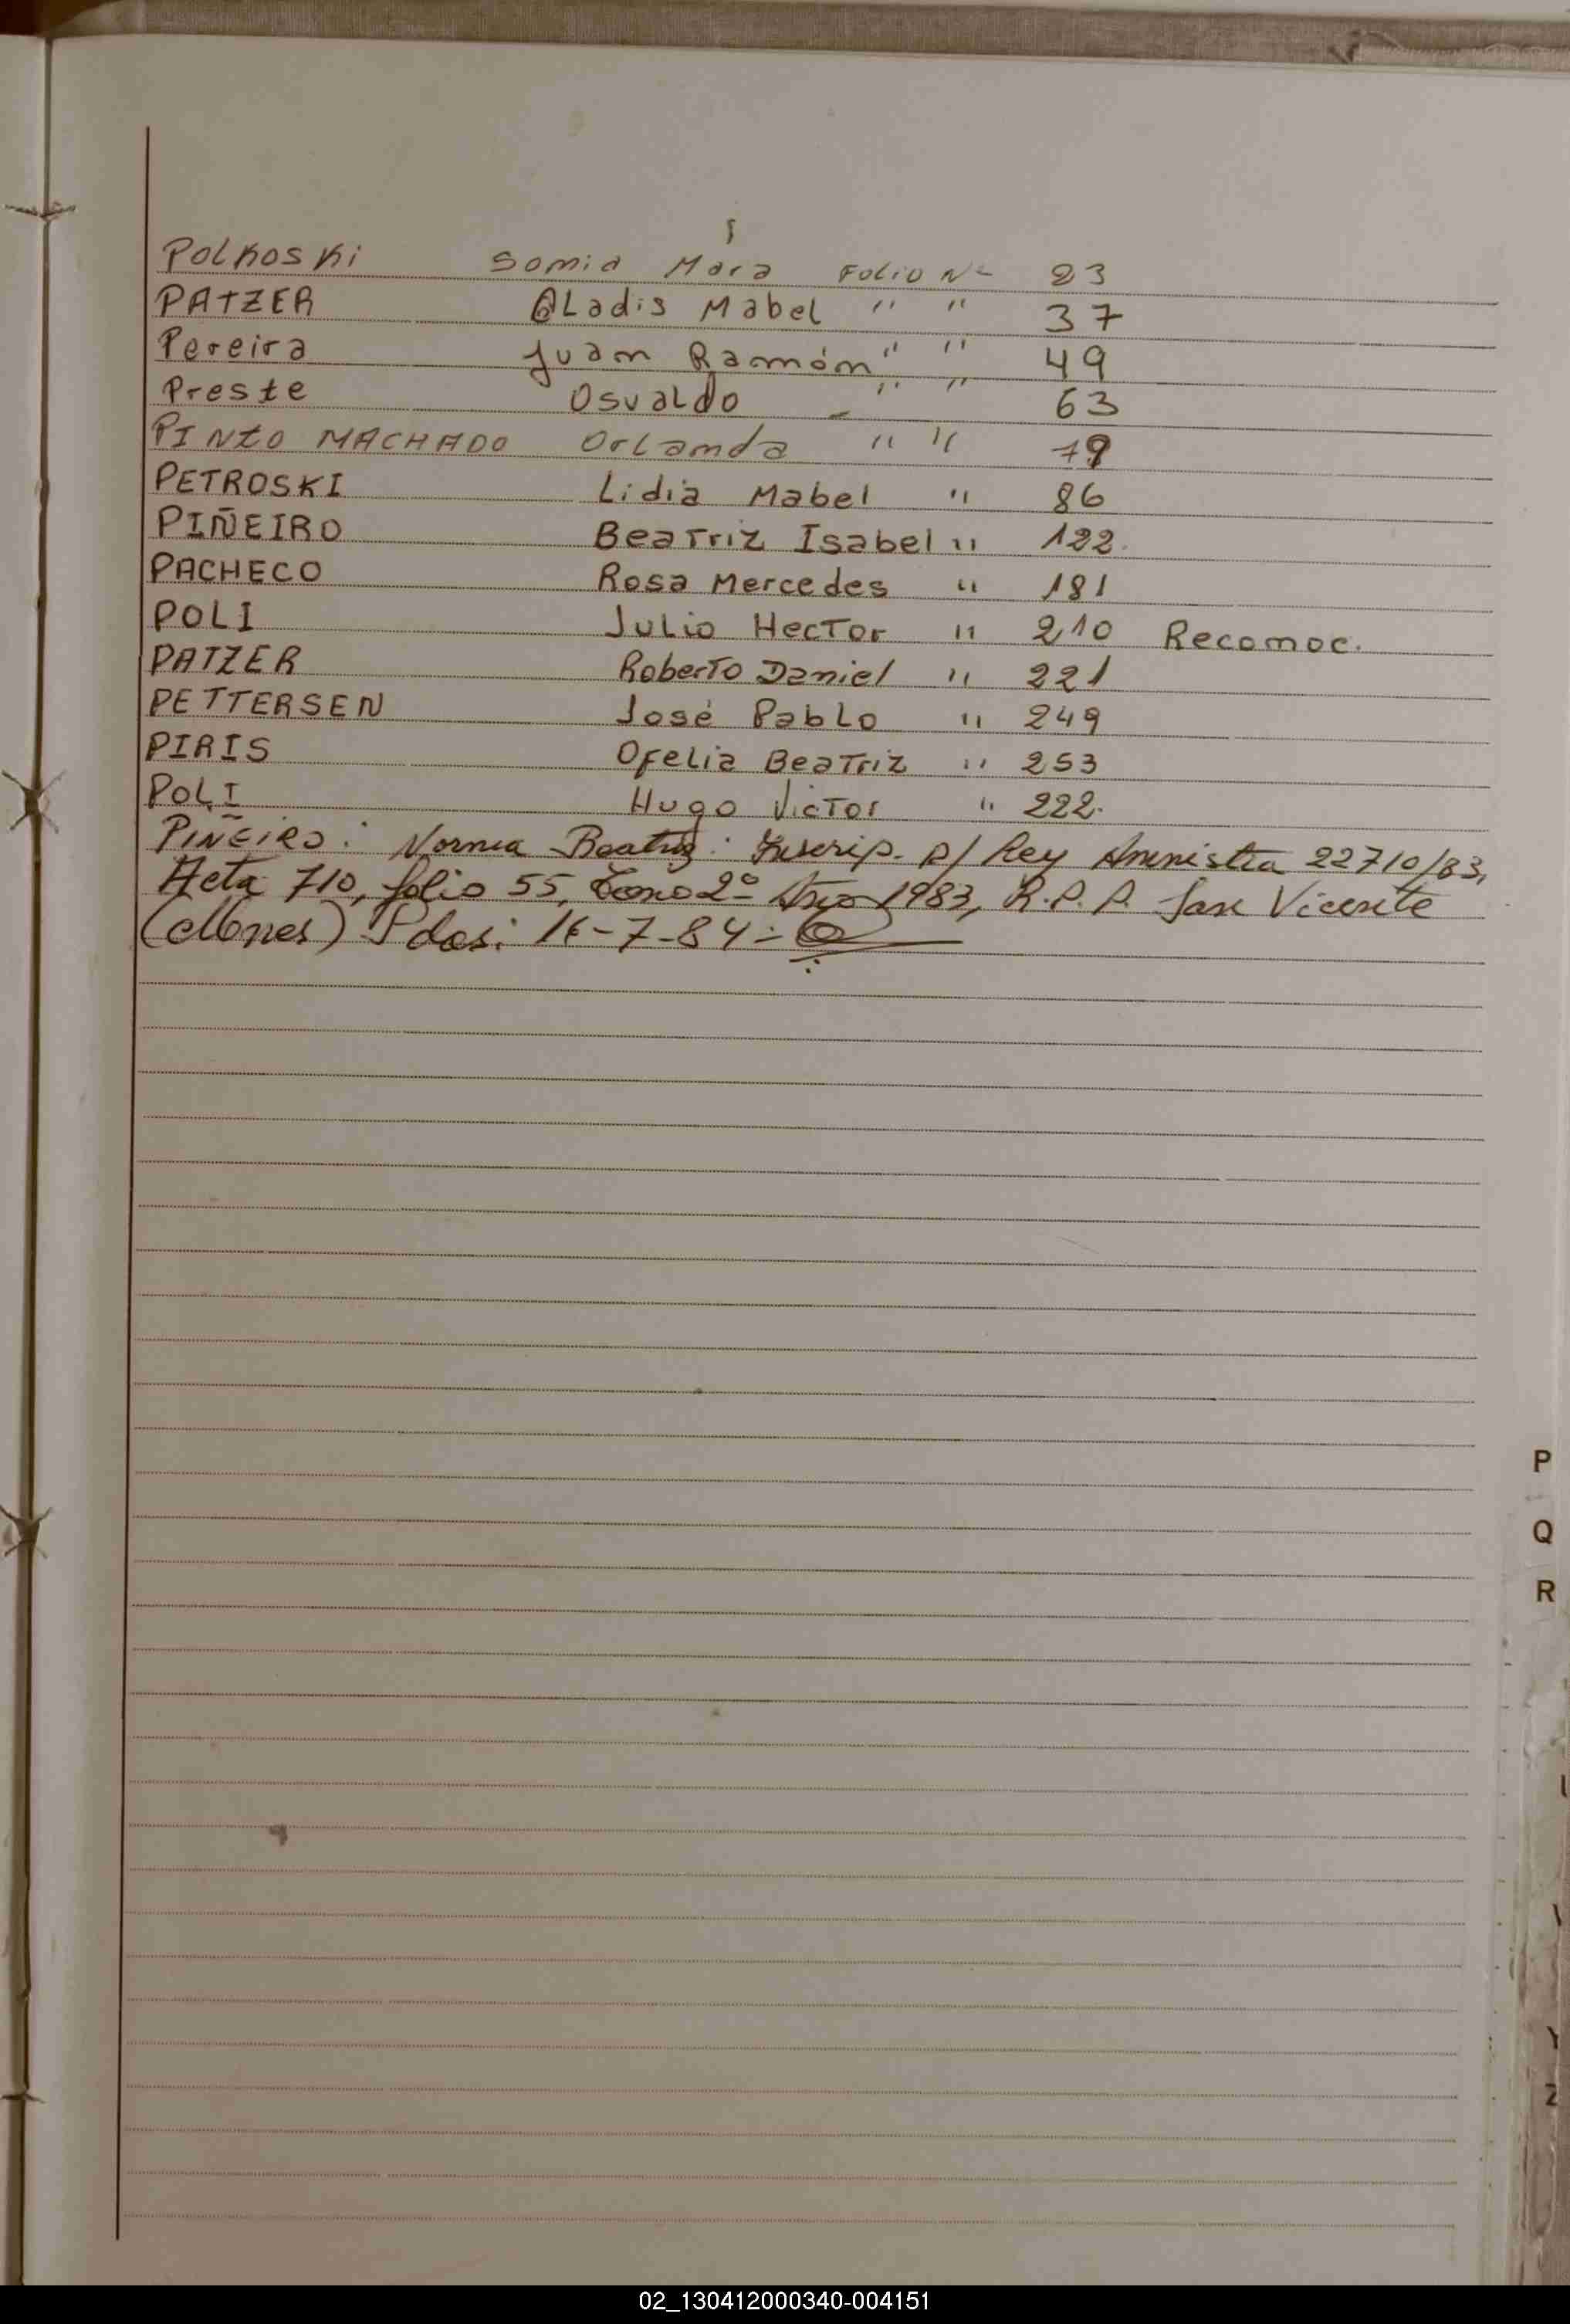 Polkoski Sonia Mara Folio Nº 23
PATZER GLadis Mabel " " 37
Pereira Juan Ramón " " 49
Preste Osvaldo " " 63
PINto MACHADO Orlanda " " 79
PETROSKI Lidia Mabel " 86
PIÑEIRO Beatriz Isabel " 122.
PACHECO Rosa Mercedes " 181
POLI Julio Hector " 210 Reconoc.
PATZER Roberto Daniel " 221
PETTERSEN José Pablo " 249
PIRIS Ofelia Beatriz " 253
POLI Hugo Victor " 222.
PIÑEIRO: Norma Beatriz: Inscrip. p/ Ley Amnistia 22710/83,
Acta 710, folio 55, Tomo 2º Año 1983, R.P.P. San Vicente
(Mnes) Pdas: 16-7-84
P
Q
R
Y
Z
02_130412000340-004151